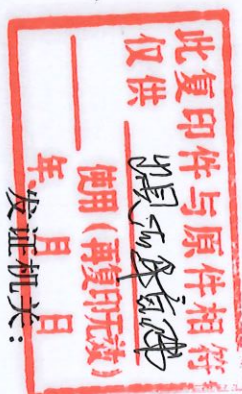 此复印件与原件相符
仅供
使用(再复印无效)
年 月 日
发证机关: